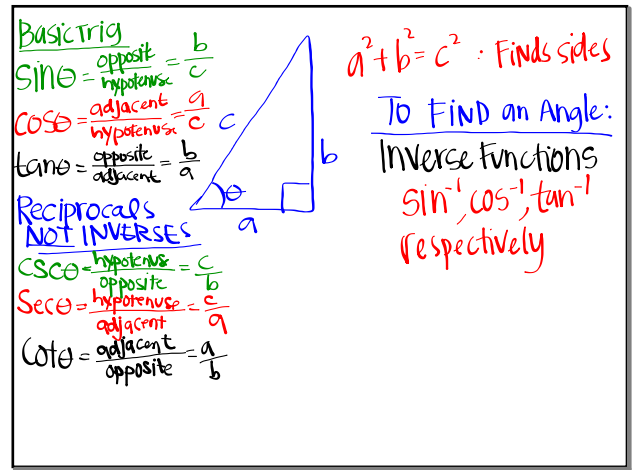 Basic Trig
sinθ = opposit/hypotenuse = b/c
cosθ = adjacent/hypotenuse = a/c
tanθ = opposite/adjacent = b/a
Reciprocals
NOT INVERSES
cscθ = hypotenus/opposite = c/b
Secθ = hypotenuse/adjacent = c/a
Cotθ = adjacent/opposite = a/b
c
θ
b
a
a² + b² = c² : Finds sides
To FIND an Angle:
Inverse Functions
sin⁻¹, cos⁻¹, tan⁻¹
respectively